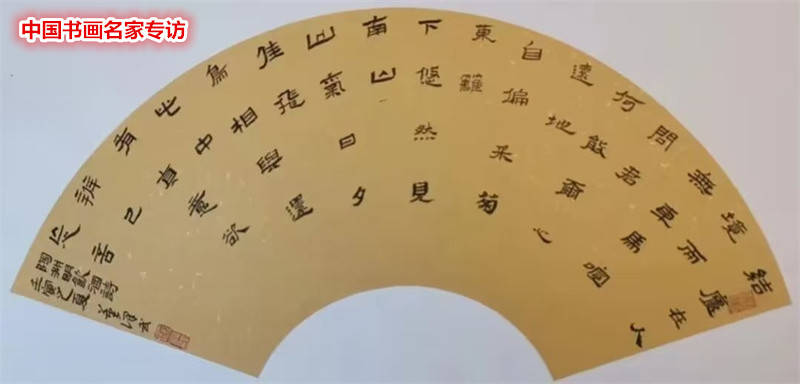 中国书画名家专访
結廬在人
境而
無車馬喧
問君
何能爾心
遠地
自偏采菊
東籬
下悠然見
南山
山氣日夕
佳飛
鳥相與還
此中
有真意欲
辨已
忘言
陶淵明飲酒詩
壬寅之夏